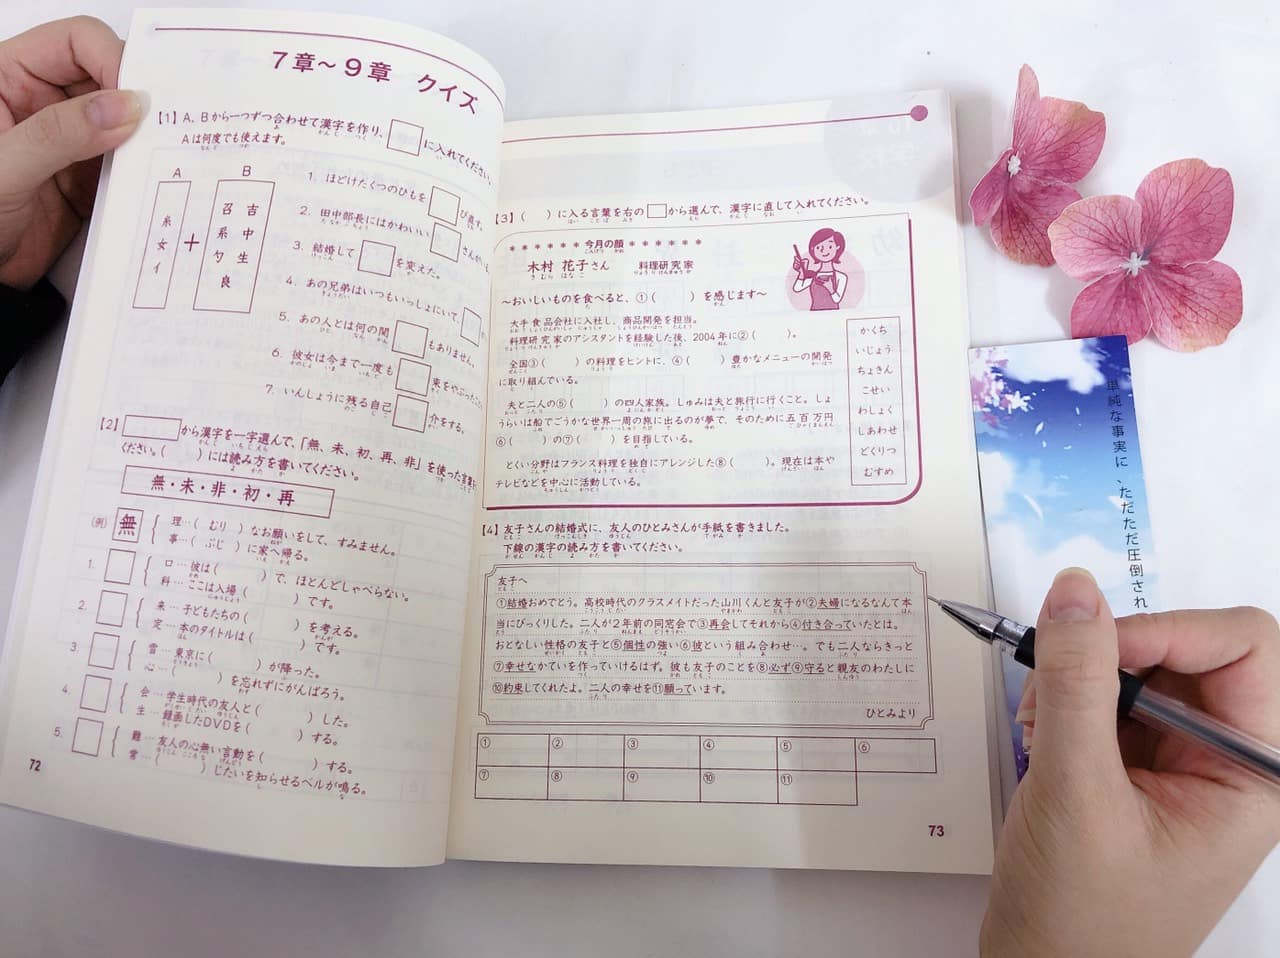 7章～9章 クイズ
【1】A、Bから一つずつ合わせて漢字を作り、□に入れてください。
Aは何度でも使えます。
A B
糸 女 イ
+
召 系 勺 良
吉 中 生
1. ほどけたくつのひもを□び直す。
2. 田中部長にはかわいい□さんがいる。
3. 結婚して□を変えた。
4. あの兄弟はいつもいっしょにいて、□
5. あの人とは何の関□もありません。
6. 彼女は今まで一度も□束をやぶった
7. いんしょうに残る自己□介をする。
【2】□から漢字を一字選んで、「無、未、初、再、非」を使った言葉を
ください。( )には読み方を書いてください。
無・未・非・初・再
(例) 無
理…( むり )なお願いをして、すみません。
事…( ぶじ )に家へ帰る。
1. □
口…彼は( )で、ほとんどしゃべらない。
料…ここは入場( )です。
2. □
来…子どもたちの( )を考える。
定…本のタイトルは( )です。
3. □
雪…東京に( )が降った。
心…( )を忘れずにがんばろう。
4. □
会…学生時代の友人と( )した。
生…録画したDVDを( )する。
5. □
難…友人の心無い言動を( )する。
常…( )じたいを知らせるベルが鳴る。
72
【3】( )に入る言葉を右の□から選んで、漢字に直して入れてください。
****** 今月の顔 ******
木村 花子さん 料理研究家
～おいしいものを食べると、①( )を感じます～
大手食品会社に入社し、商品開発を担当。
料理研究家のアシスタントを経験した後、2004年に②( )。
全国③( )の料理をヒントに、④( )豊かなメニューの開発
に取り組んでいる。
夫と二人の⑤( )の四人家族。しゅみは夫と旅行に行くこと。しょ
うらいは船でごうかな世界一周の旅に出るのが夢で、そのために五百万円
⑥( )の⑦( )を目指している。
とくい分野はフランス料理を独自にアレンジした⑧( )。現在は本や
テレビなどを中心に活動している。
かくち
いじょう
ちょきん
こせい
わしょく
しあわせ
どくりつ
むすめ
【4】友子さんの結婚式に、友人のひとみさんが手紙を書きました。
下線の漢字の読み方を書いてください。
友子へ
①結婚おめでとう。高校時代のクラスメイトだった山川くんと友子が②夫婦になるなんて本
当にびっくりした。二人が2年前の同窓会で③再会してそれから④付き合っていたとは。
おとなしい性格の友子と⑤個性の強い⑥彼という組み合わせ…。でも二人ならきっと
⑦幸せなかていを作っていけるはず。彼も友子のことを⑧必ず⑨守ると親友のわたしに
⑩約束してくれたよ。二人の幸せを⑪願っています。
ひとみより
① ② ③ ④ ⑤ ⑥
⑦ ⑧ ⑨ ⑩ ⑪
73
単純な事実に、ただただ圧倒され